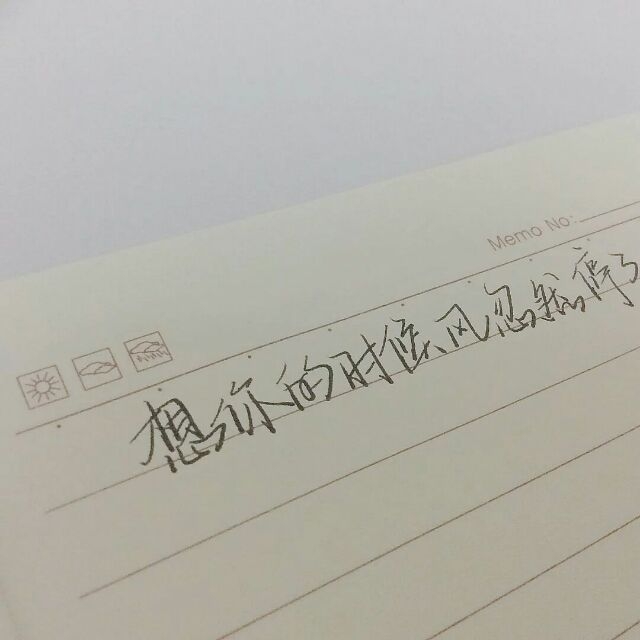 Memo No:
想你的时候风忽就停了